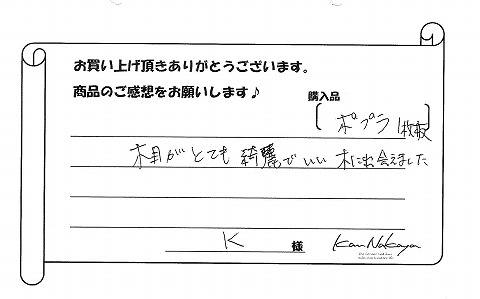 お買い上げ頂きありがとうございます。
商品のご感想をお願いします♪
購入品
ポプラ1枚板
木目がとても綺麗でいい木に出会えました
K 様
Kan Nakaya